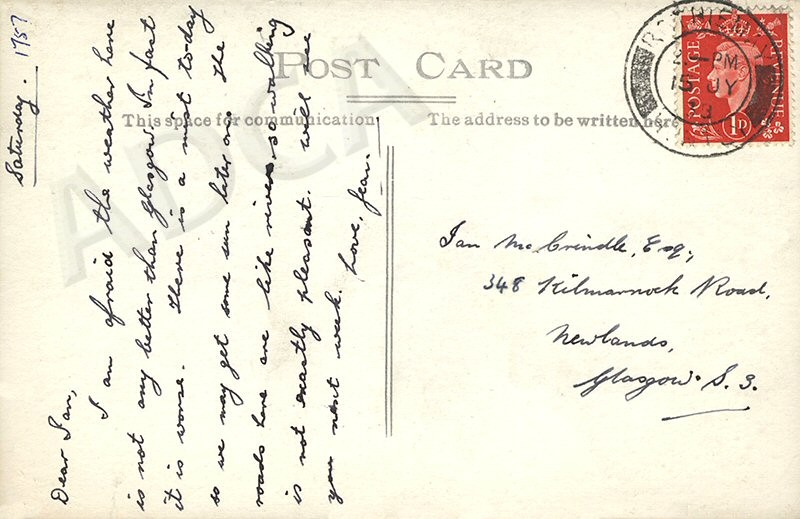 POST CARD
This space for communication.
The address to be written here
Saturday. 1937
Dear Ian,
I am afraid the weather here
is not any better than Glasgow. In fact
it is worse. There is a mist to-day
so we may get some sun later on. The
roads here are like rivers so walking
is not exactly pleasant. Will see
you next week. Love, Jean.
Ian McCrindle, Esq.,
348 Kilmarnock Road,
Newlands,
Glasgow. S.3.
POSTAGE REVENUE
1D
PM
15 JY
ADCA